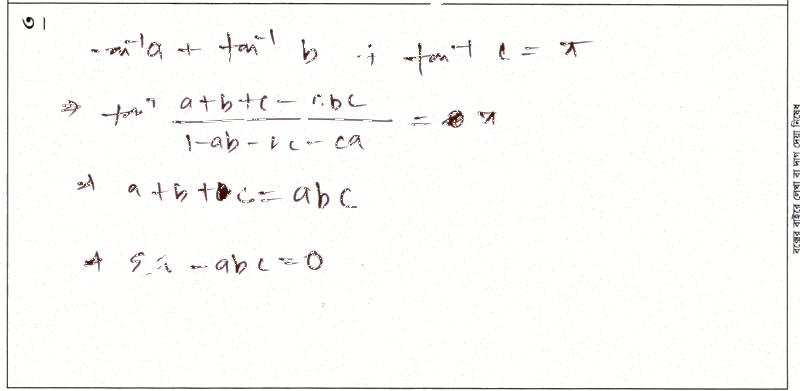 ৩।
tan⁻¹ a + tan⁻¹ b + tan⁻¹ c = π
⇒ tan⁻¹ (a+b+c - abc)/(1-ab-bc-ca) = π
⇒ a+b+c = abc
⇒ - abc = 0
বক্সের বাইরে লেখা বা দাগ দেয়া নিষেধ